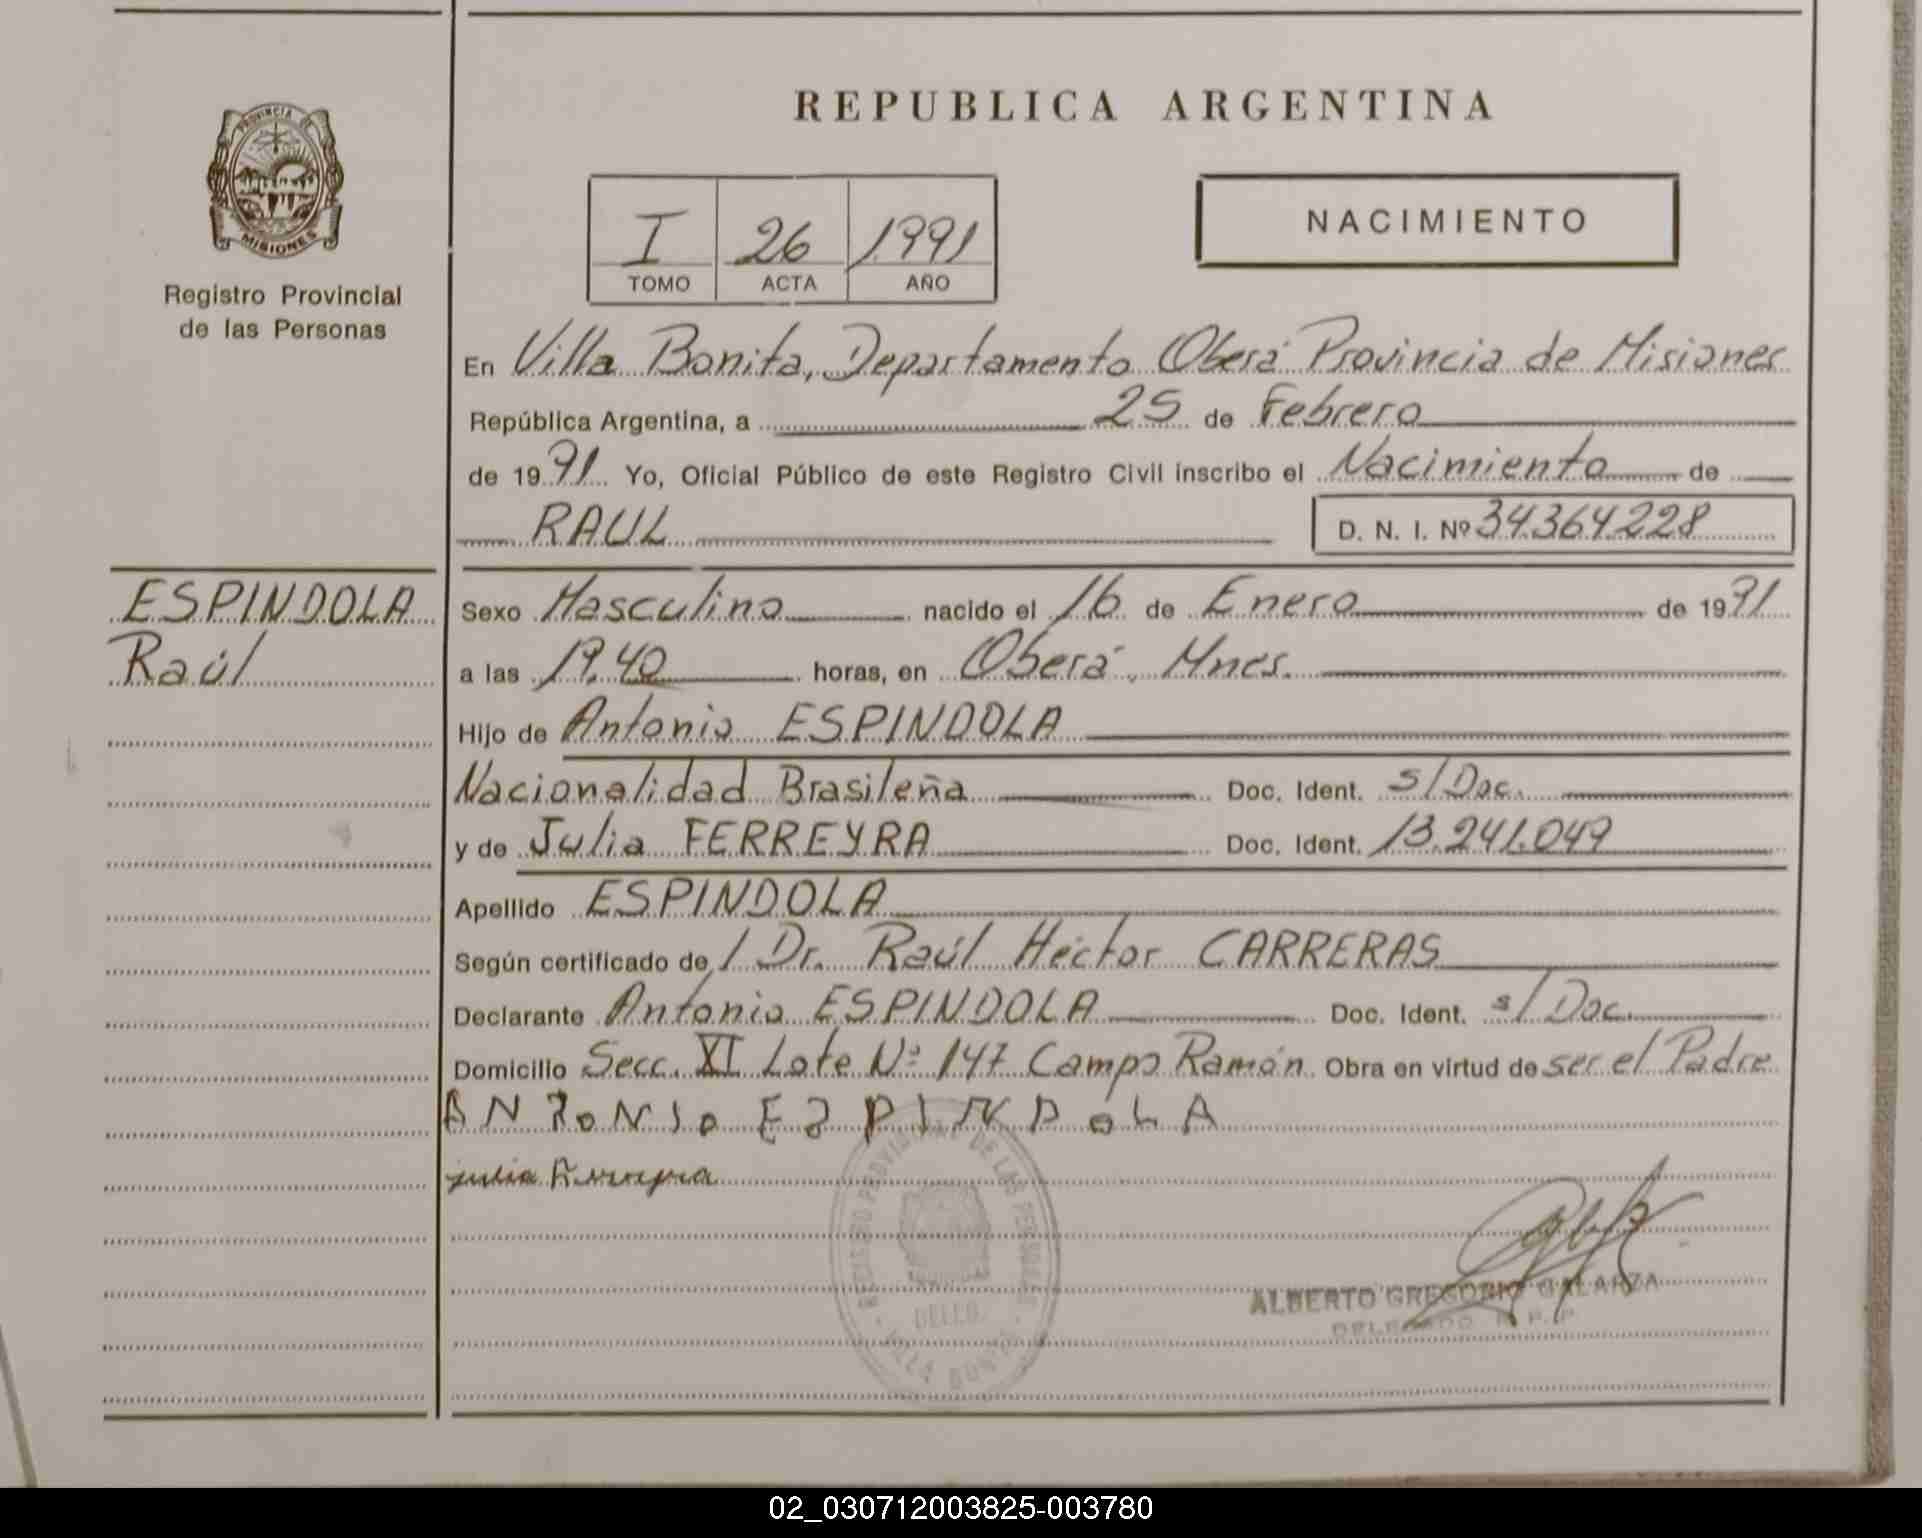 REPUBLICA ARGENTINA
PROVINCIA DE
MISIONES
Registro Provincial
de las Personas
I 26 1991
TOMO ACTA AÑO
NACIMIENTO
En Villa Bonita, Departamento Oberá Provincia de Misiones
República Argentina, a 25 de Febrero
de 1991 Yo, Oficial Público de este Registro Civil inscribo el Nacimiento de
RAUL D. N. I. Nº 34364228
ESPINDOLA
Raúl
Sexo Masculino nacido el 16 de Enero de 1991
a las 19,40 horas, en Oberá, Mnes.
Hijo de Antonio ESPINDOLA
Nacionalidad Brasileña Doc. Ident. s/Doc.
y de Julia FERREYRA Doc. Ident. 13.241.049
Apellido ESPINDOLA
Según certificado de / Dr. Raúl Héctor CARRERAS
Declarante Antonio ESPINDOLA Doc. Ident. s/Doc.
Domicilio Secc. XI Lote Nº 147 Campo Ramón. Obra en virtud de ser el Padre
ANTONIO ESPINDOLA
julia Ferreyra
REGISTRO PROVINCIAL DE LAS PERSONAS
DELEG.
VILLA BONITA
ALBERTO GREGORIO GALARZA
DELEGADO R.P.P
02_030712003825-003780